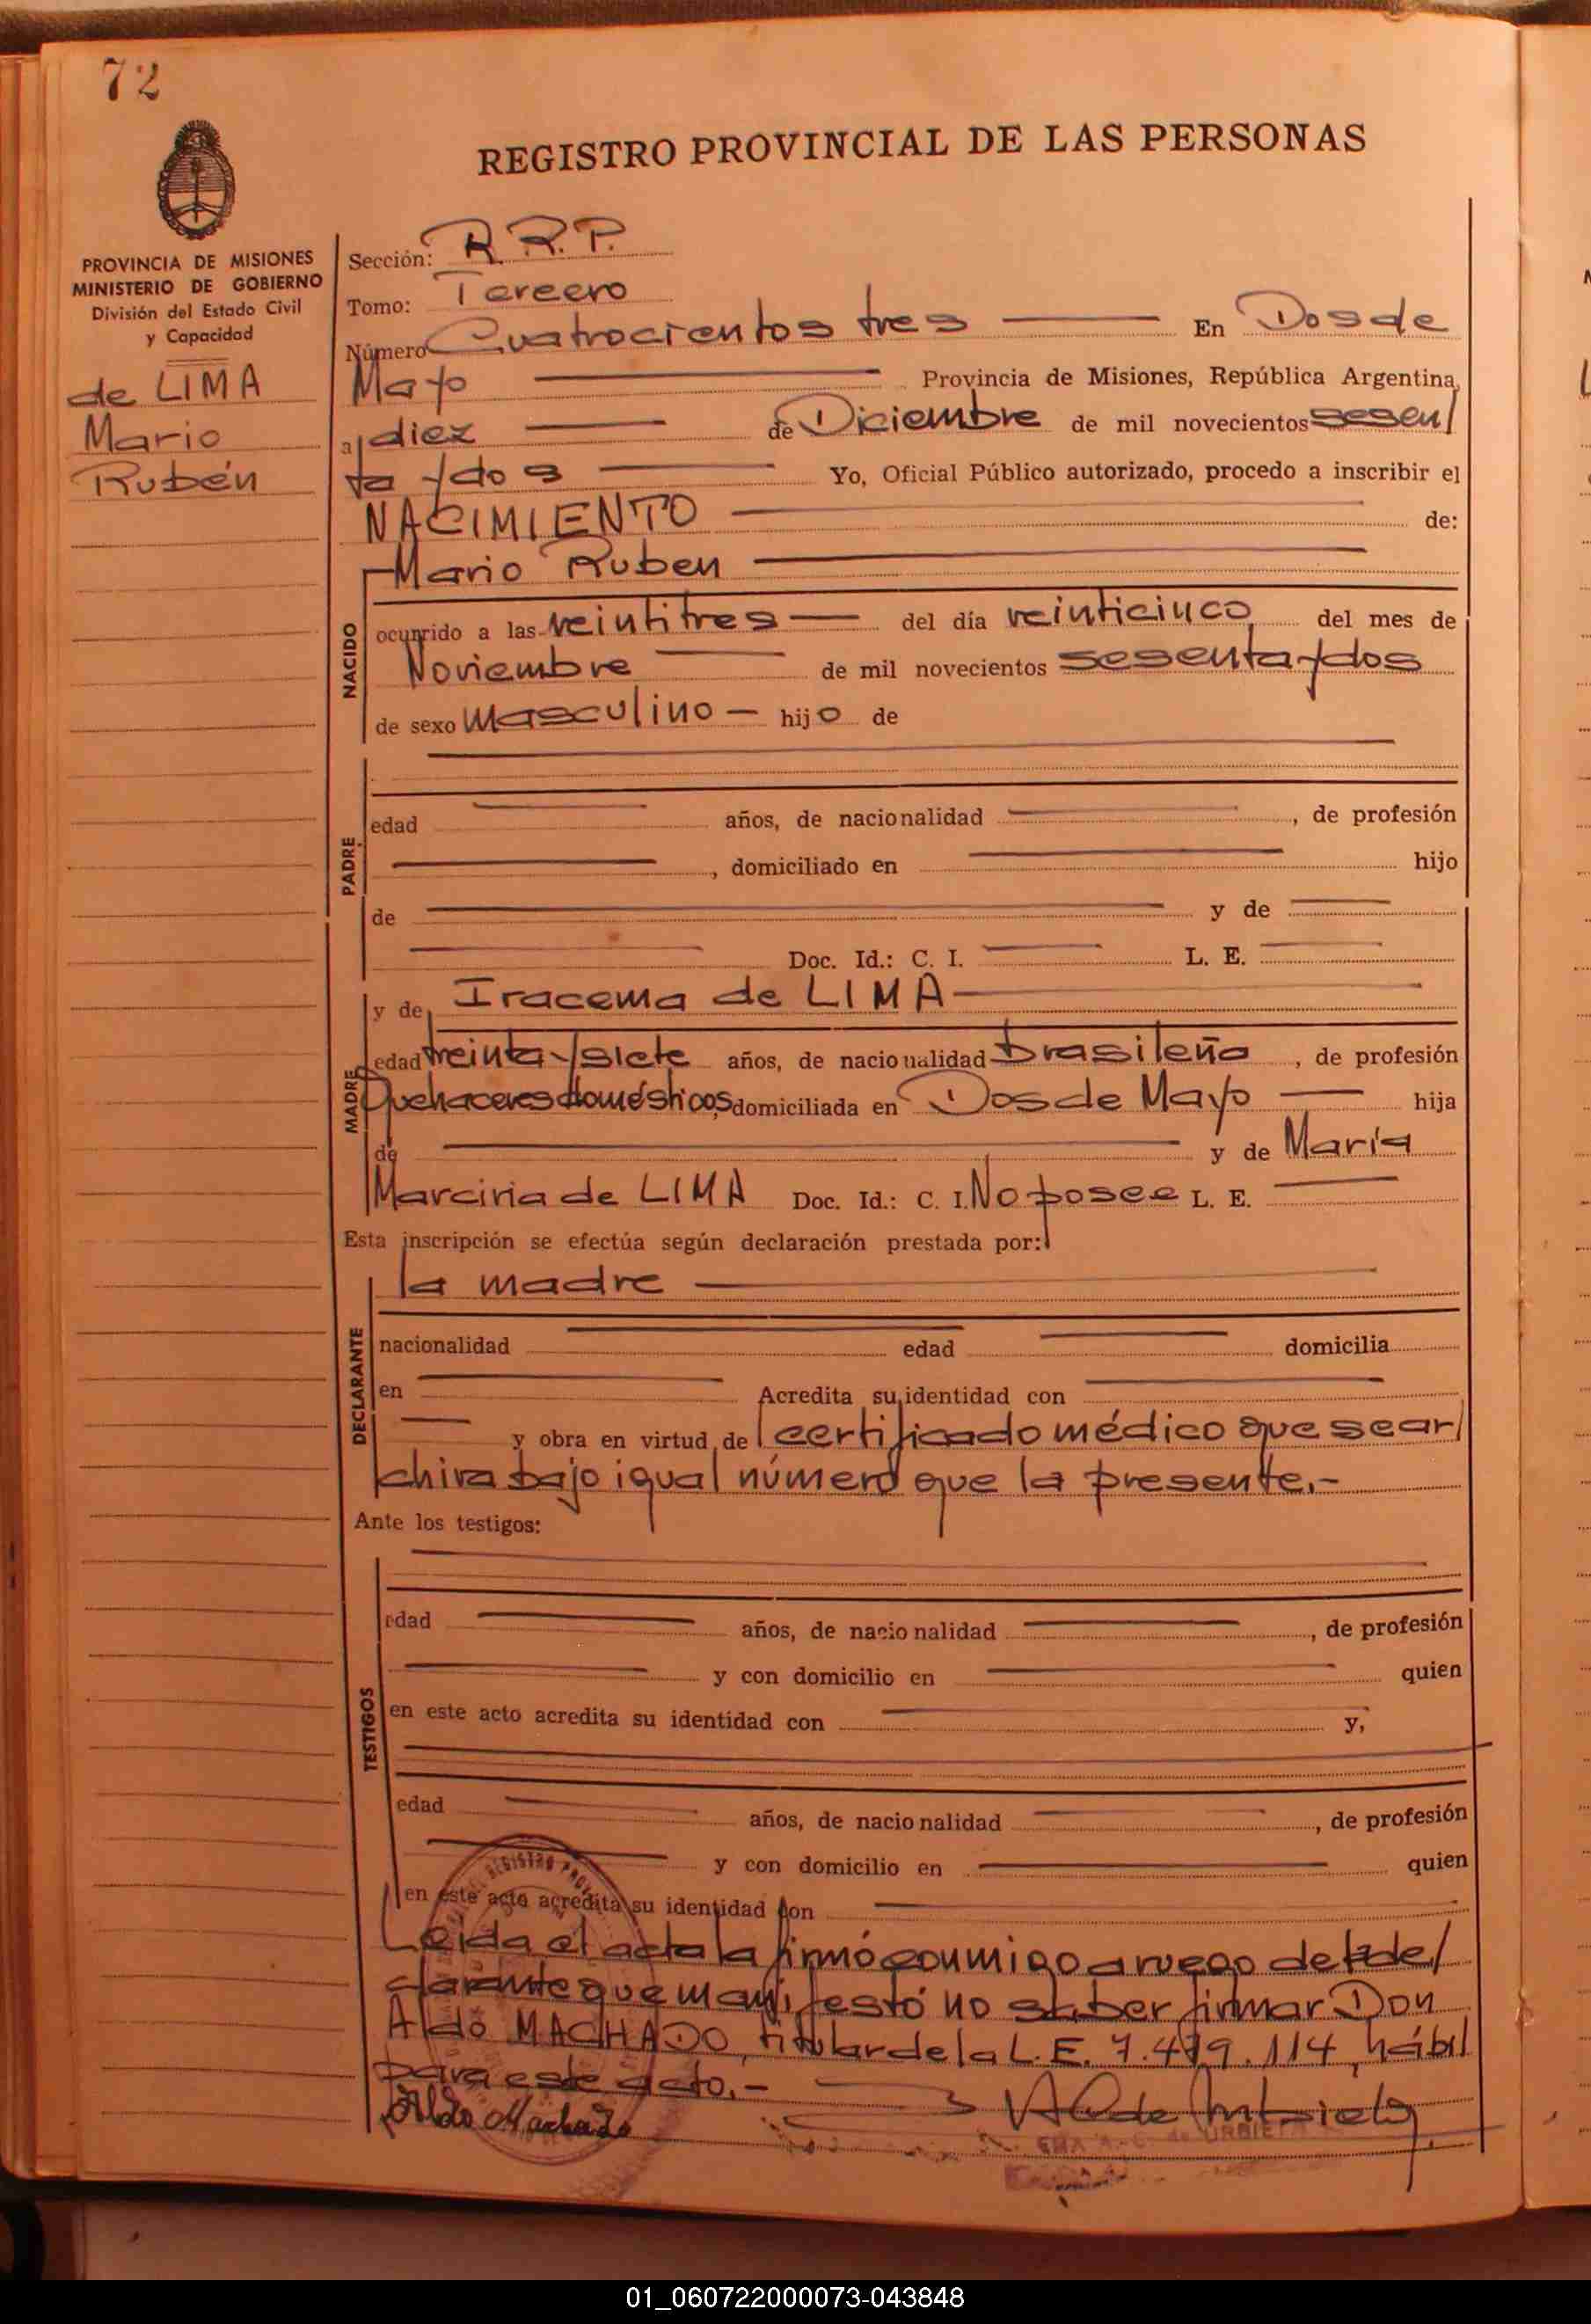 72
REGISTRO PROVINCIAL DE LAS PERSONAS
PROVINCIA DE MISIONES
MINISTERIO DE GOBIERNO
División del Estado Civil
y Capacidad
de LIMA
Mario
Rubén
Sección: R. R. P.
Tomo: Tercero
Número Cuatrocientos tres En Dos de
Mayo Provincia de Misiones, República Argentina,
a diez de Diciembre de mil novecientos sesen/
ta y dos Yo, Oficial Público autorizado, procedo a inscribir el
NACIMIENTO de:
Mario Ruben
NACIDO
ocurrido a las veintitres del día veinticinco del mes de
Noviembre de mil novecientos sesenta y dos
de sexo Masculino hijo de
PADRE
edad años, de nacionalidad , de profesión
, domiciliado en hijo
de y de
Doc. Id.: C. I. L. E.
MADRE
y de Iracema de LIMA
edad treinta y siete años, de nacionalidad brasileña , de profesión
Quehaceres domésticos, domiciliada en Dos de Mayo hija
de y de María
Marciria de LIMA Doc. Id.: C. I. No posee L. E.
Esta inscripción se efectúa según declaración prestada por:
la madre
DECLARANTE
nacionalidad edad domicilia
en Acredita su identidad con
y obra en virtud de certificado médico que se ar/
chiva bajo igual número que la presente.-
Ante los testigos:
TESTIGOS
edad años, de nacionalidad , de profesión
y con domicilio en quien
en este acto acredita su identidad con y,
edad años, de nacionalidad , de profesión
y con domicilio en quien
en este acto acredita su identidad con
Leída el acta la firmó conmigo a ruego de la de/
clarante que manifestó no saber firmar Don
Aldo MACHADO, titular de la L.E. 7.479.114, hábil
para este acto.-
Aldo Machado
de URBIETA
01_060722000073-043848